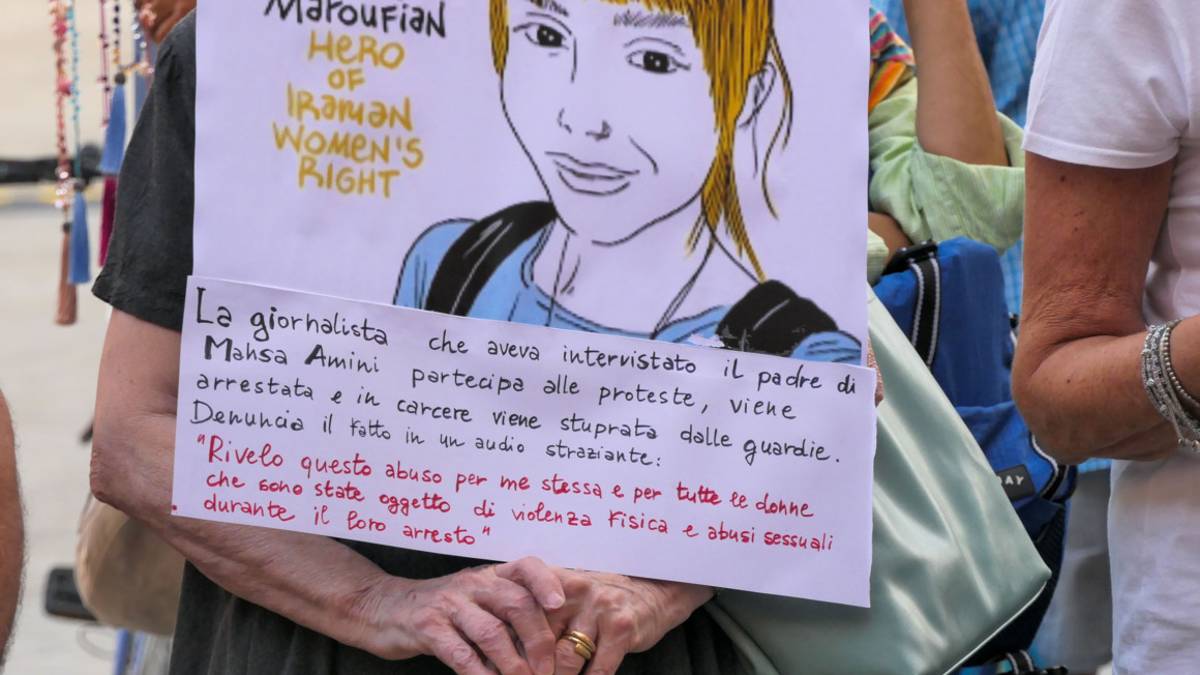 Maroufian
HERO
OF
IRANIAN
WOMEN'S
RIGHT
La giornalista che aveva intervistato il padre di
Mahsa Amini partecipa alle proteste, viene
arrestata e in carcere viene stuprata dalle guardie.
Denuncia il fatto in un audio straziante:
"Rivelo questo abuso per me stessa e per tutte le donne
che sono state oggetto di violenza fisica e abusi sessuali
durante il loro arresto"
DAY